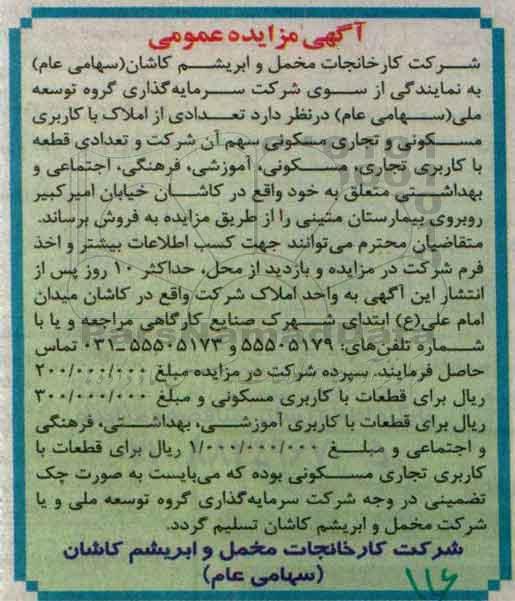 آگهی مزایده عمومی
شرکت کارخانجات مخمل و ابریشم کاشان(سهامی عام)
به نمایندگی از سوی شرکت سرمایه‌گذاری گروه توسعه
ملی(سهامی عام) درنظر دارد تعدادی از املاک با کاربری
مسکونی و تجاری مسکونی سهم آن شرکت و تعدادی قطعه
با کاربری تجاری، مسکونی، آموزشی، فرهنگی، اجتماعی و
بهداشتی متعلق به خود واقع در کاشان خیابان امیرکبیر
روبروی بیمارستان متینی را از طریق مزایده به فروش برساند.
متقاضیان محترم می‌توانند جهت کسب اطلاعات بیشتر و اخذ
فرم شرکت در مزایده و بازدید از محل، حداکثر ۱۰ روز پس از
انتشار این آگهی به واحد املاک شرکت واقع در کاشان میدان
امام علی(ع) ابتدای شهرک صنایع کارگاهی مراجعه و یا با
شماره تلفن‌های: ۵۵۵۰۵۱۷۹ و ۵۵۵۰۵۱۷۳ ـ۰۳۱ تماس
حاصل فرمایند. سپرده شرکت در مزایده مبلغ ۲۰۰/۰۰۰/۰۰۰
ریال برای قطعات با کاربری مسکونی و مبلغ ۳۰۰/۰۰۰/۰۰۰
ریال برای قطعات با کاربری آموزشی، بهداشتی، فرهنگی
و اجتماعی و مبلغ ۱/۰۰۰/۰۰۰/۰۰۰ ریال برای قطعات با
کاربری تجاری مسکونی بوده که می‌بایست به صورت چک
تضمینی در وجه شرکت سرمایه‌گذاری گروه توسعه ملی و یا
شرکت مخمل و ابریشم کاشان تسلیم گردد.
شرکت کارخانجات مخمل و ابریشم کاشان
(سهامی عام)
۱۱۶